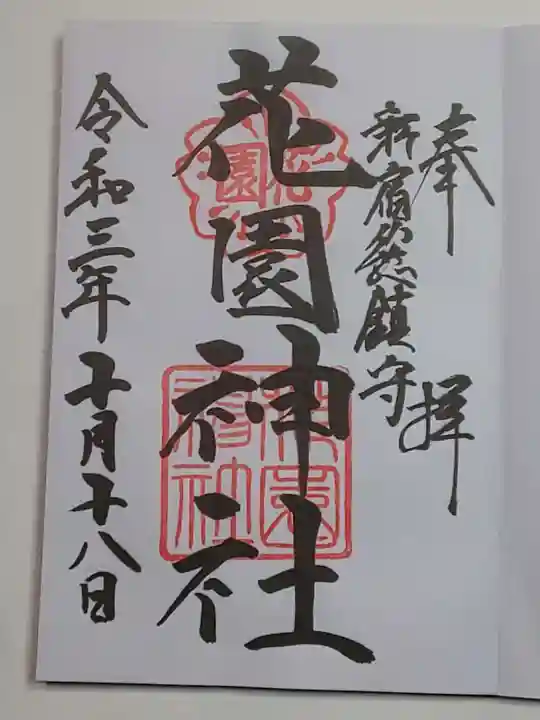 奉拝
新宿乃総鎮守
花園神社
令和三年十月十八日
花園神社
花園神社